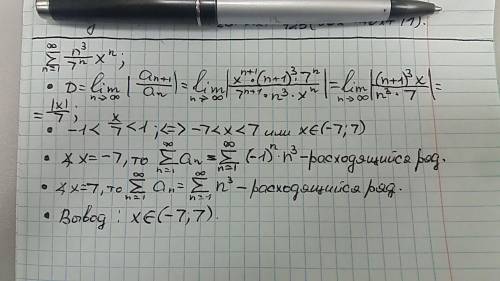 ∑_{n=1}^{∞} n³/7ⁿ xⁿ;
• D = lim_{n→∞} |a_{n+1}/a_n| = lim_{n→∞} |x^{n+1}·(n+1)³·7ⁿ / 7^{n+1}·n³·xⁿ| = lim_{n→∞} |(n+1)³x / n³·7| =
= |x|/7;
• -1 < x/7 < 1; <=> -7 < x < 7 или x∈(-7;7)
• ∡ x=-7, то ∑_{n=1}^{∞} a_n = ∑_{n=1}^{∞} (-1)ⁿ·n³ - расходящийся ряд.
• ∡ x=7, то ∑_{n=1}^{∞} a_n = ∑_{n=1}^{∞} n³ - расходящийся ряд.
• Вывод: x∈(-7;7).